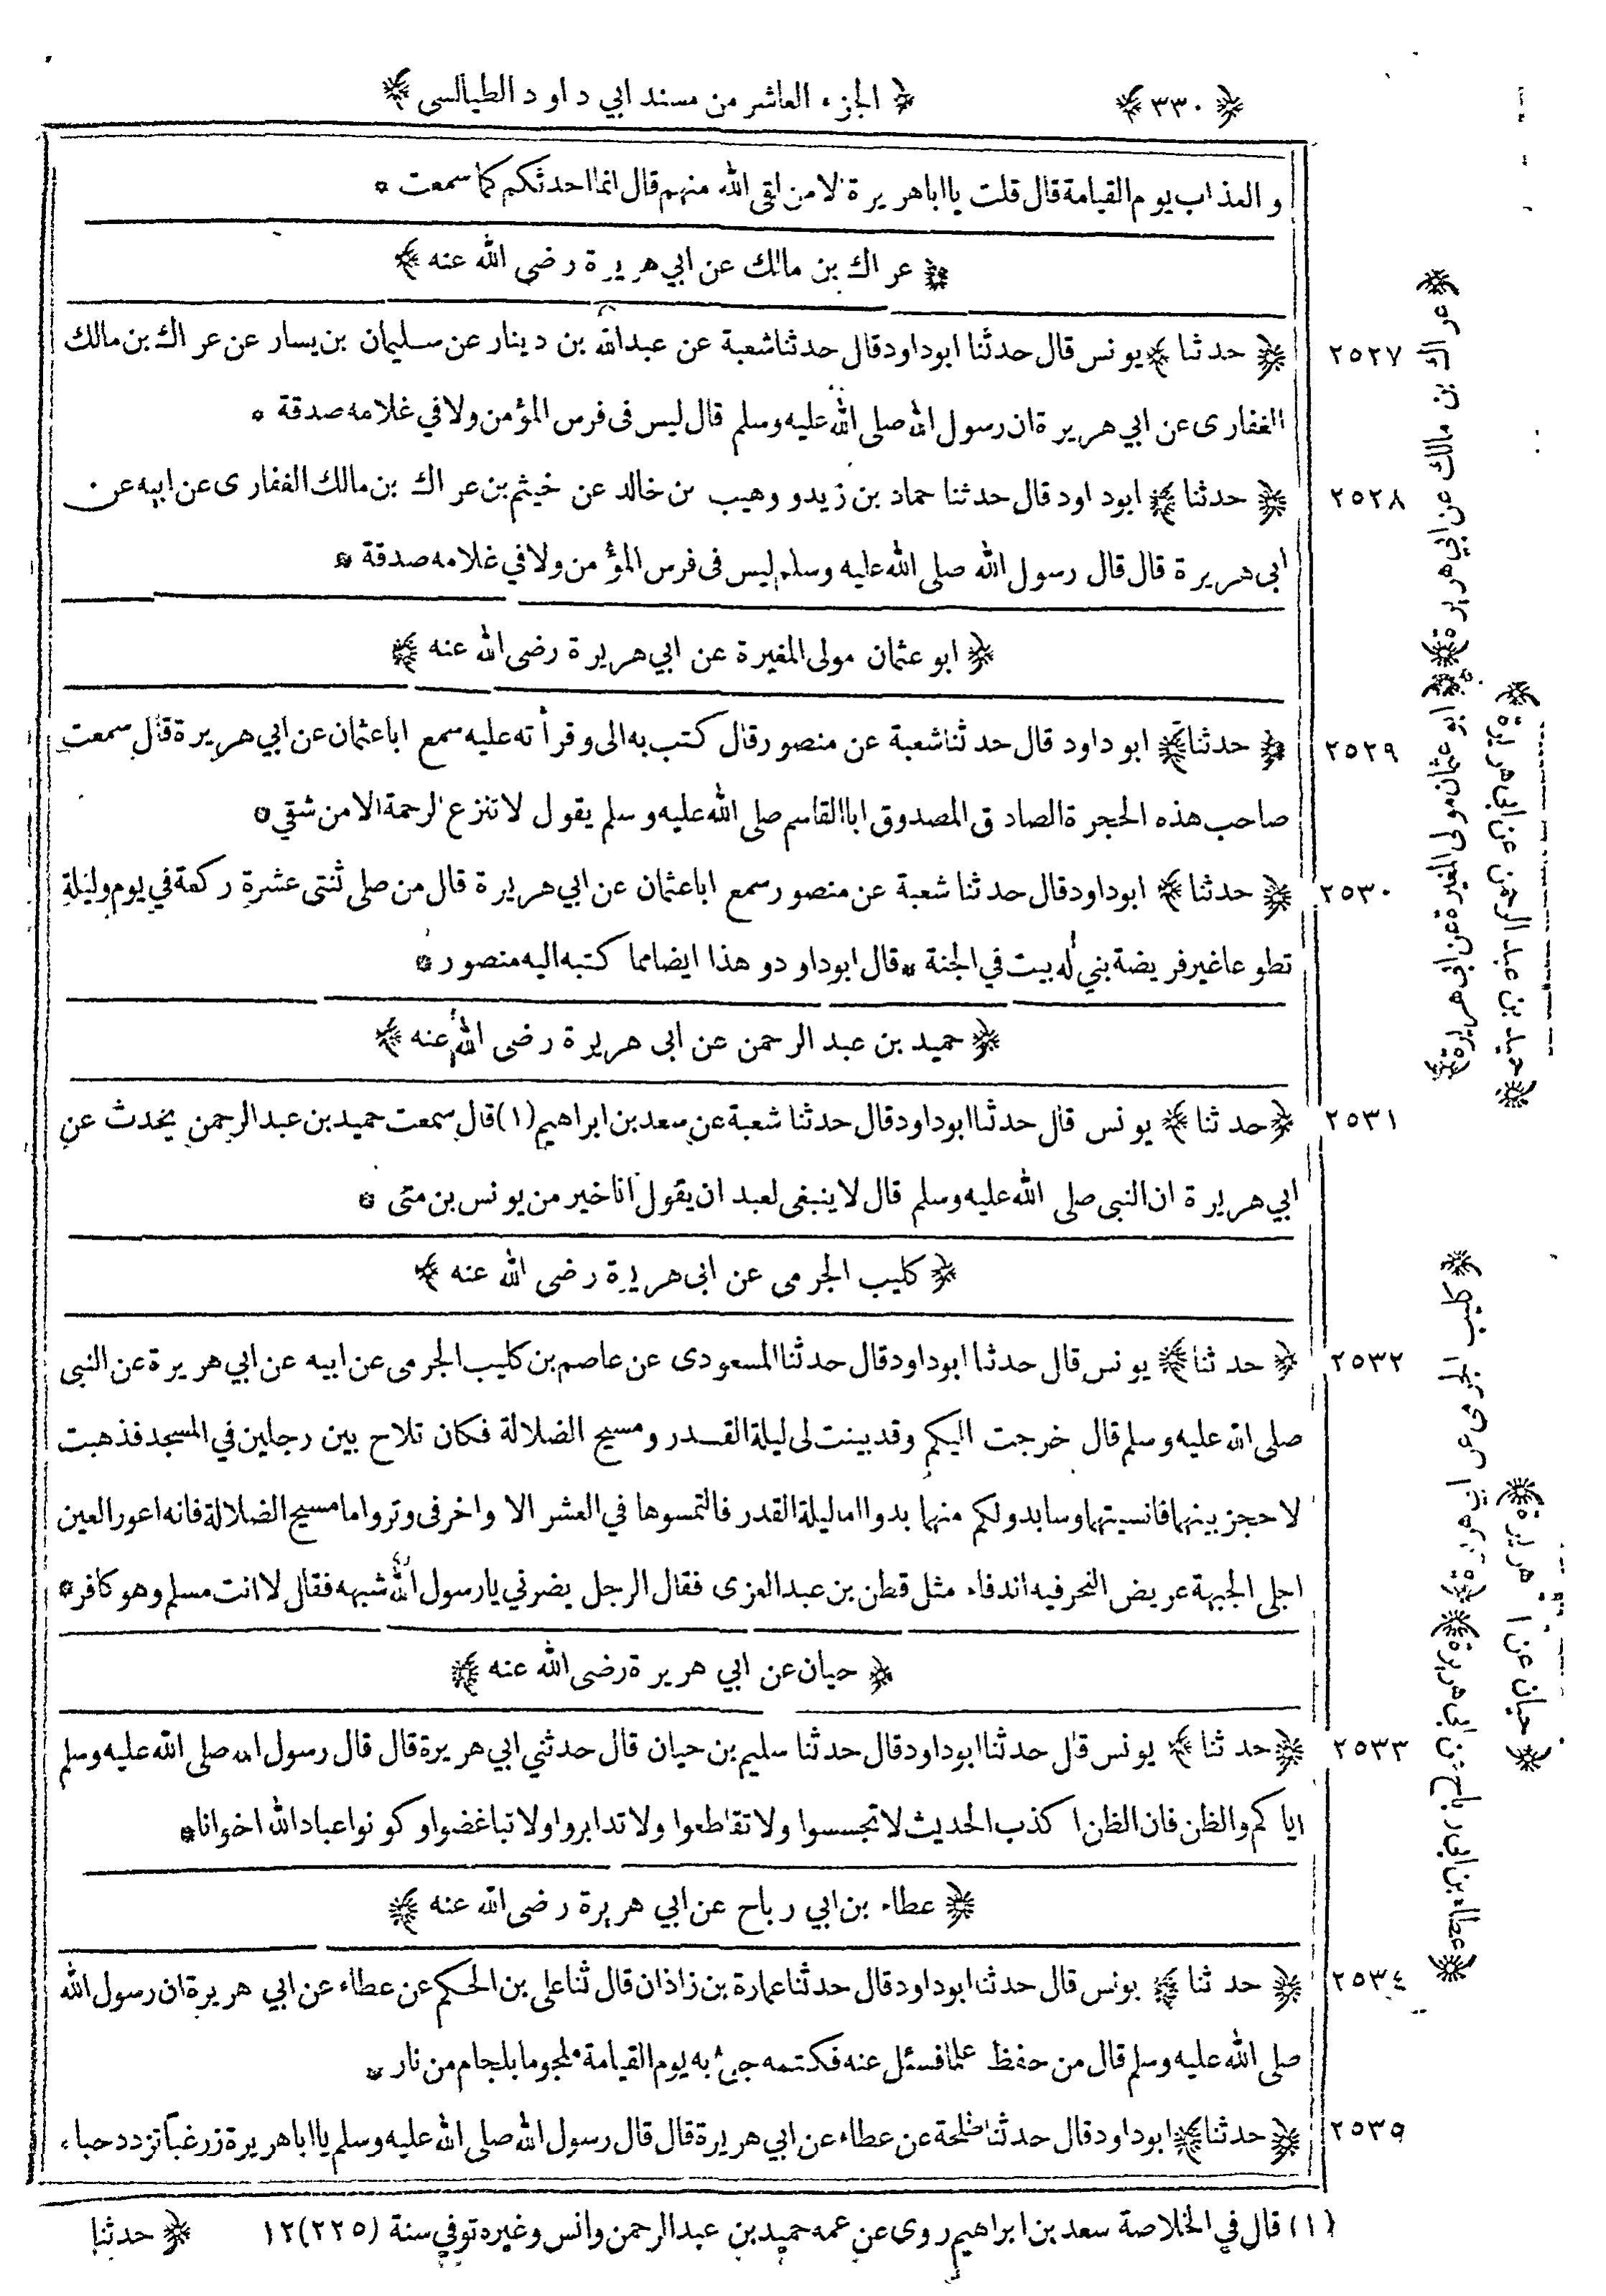 ﴿ ٣٣٠ ﴾ ﴿ الجزء العاشر من مسند ابي داود الطيالسى ﴾
والعذاب يوم القيامة قال قلت يا ابا هريرة الا من اتقى الله منهم قال انما احدثكم كما سمعت *
﴿ عراك بن مالك عن ابي هريرة رضى الله عنه ﴾
٢٥٢٧ ﴿ حدثنا ﴾ يونس قال حدثنا ابوداود قال حدثنا شعبة عن عبدالله بن دينار عن سليمان بن يسار عن عراك بن مالك
الغفارى عن ابي هريرة ان رسول الله صلى الله عليه وسلم قال ليس فى فرس المؤمن ولا في غلامه صدقة *
٢٥٢٨ ﴿ حدثنا ﴾ ابوداود قال حدثنا حماد بن زيد و وهيب بن خالد عن خيثم بن عراك بن مالك الغفارى عن ابيه عن
ابى هريرة قال قال رسول الله صلى الله عليه وسلم ليس فى فرس المؤمن ولا في غلامه صدقة *
﴿ ابو عثمان مولى المغيرة عن ابي هريرة رضى الله عنه ﴾
٢٥٢٩ ﴿ حدثنا ﴾ ابوداود قال حدثنا شعبة عن منصور قال كتب به الى وقرأته عليه سمع ابا عثمان عن ابي هريرة قال سمعت
صاحب هذه الحجرة الصادق المصدوق ابا القاسم صلى الله عليه وسلم يقول لا تنزع الرحمة الا من شقي *
٢٥٣٠ ﴿ حدثنا ﴾ ابوداود قال حدثنا شعبة عن منصور سمع ابا عثمان عن ابي هريرة قال من صلى ثنتى عشرة ركعة في يوم وليلة
تطوعا غير فريضة بني له بيت في الجنة * قال ابوداود وهذا ايضا مما كتبه اليه منصور *
﴿ حميد بن عبد الرحمن عن ابى هريرة رضى الله عنه ﴾
٢٥٣١ ﴿ حدثنا ﴾ يونس قال حدثنا ابوداود قال حدثنا شعبة عن سعد بن ابراهيم (١) قال سمعت حميد بن عبد الرحمن يحدث عن
ابي هريرة ان النبى صلى الله عليه وسلم قال لا ينبغى لعبد ان يقول انا خير من يونس بن متى *
﴿ كليب الجرمى عن ابى هريرة رضى الله عنه ﴾
٢٥٣٢ ﴿ حدثنا ﴾ يونس قال حدثنا ابوداود قال حدثنا المسعودى عن عاصم بن كليب الجرمى عن ابيه عن ابي هريرة عن النبى
صلى الله عليه وسلم قال خرجت اليكم وقد بينت لى ليلة القدر ومسيح الضلالة فكان تلاح بين رجلين في المسجد فذهبت
لاحجز بينهما فانسيتهما وسابدو لكم منهما بدوا اما ليلة القدر فالتمسوها في العشر الاواخر فى وتر واما مسيح الضلالة فانه اعور العين
اجلى الجبهة عريض النحر فيه اندفاء مثل قطن بن عبد العزى فقال الرجل يضرني يا رسول الله شبهه فقال لا انت مسلم وهو كافر *
﴿ حيان عن ابي هريرة رضى الله عنه ﴾
٢٥٣٣ ﴿ حدثنا ﴾ يونس قال حدثنا ابوداود قال حدثنا سليم بن حيان قال حدثني ابي هريرة قال قال رسول الله صلى الله عليه وسلم
اياكم والظن فان الظن اكذب الحديث لا تجسسوا ولا تقاطعوا ولا تدابروا ولا تباغضوا وكونوا عباد الله اخوانا *
﴿ عطاء بن ابي رباح عن ابي هريرة رضى الله عنه ﴾
٢٥٣٤ ﴿ حدثنا ﴾ يونس قال حدثنا ابوداود قال حدثنا عمارة بن زاذان قال ثنا على بن الحكم عن عطاء عن ابي هريرة ان رسول الله
صلى الله عليه وسلم قال من حفظ علما فسئل عنه فكتمه جئ به يوم القيامة ملجوما بلجام من نار *
٢٥٣٥ ﴿ حدثنا ﴾ ابوداود قال حدثنا طلحة عن عطاء عن ابي هريرة قال قال رسول الله صلى الله عليه وسلم يا ابا هريرة زر غبا تزدد حباء
(١) قال في الخلاصة سعد بن ابراهيم روى عن عمه حميد بن عبد الرحمن وانس وغيره توفي سنة (٢٢٥) ١٢ ﴿ حدثنا
﴿ عراك بن مالك عن ابي هريرة ﴾
﴿ ابو عثمان مولى المغيرة عن ابى هريرة ﴾
﴿ حميد بن عبد الرحمن عن ابى هريرة ﴾
﴿ كليب الجرمى عن ابي هريرة ﴾
﴿ حيان عن ا هريرة ﴾
﴿ عطاء بن ابى رباح عن ابى هريرة ﴾